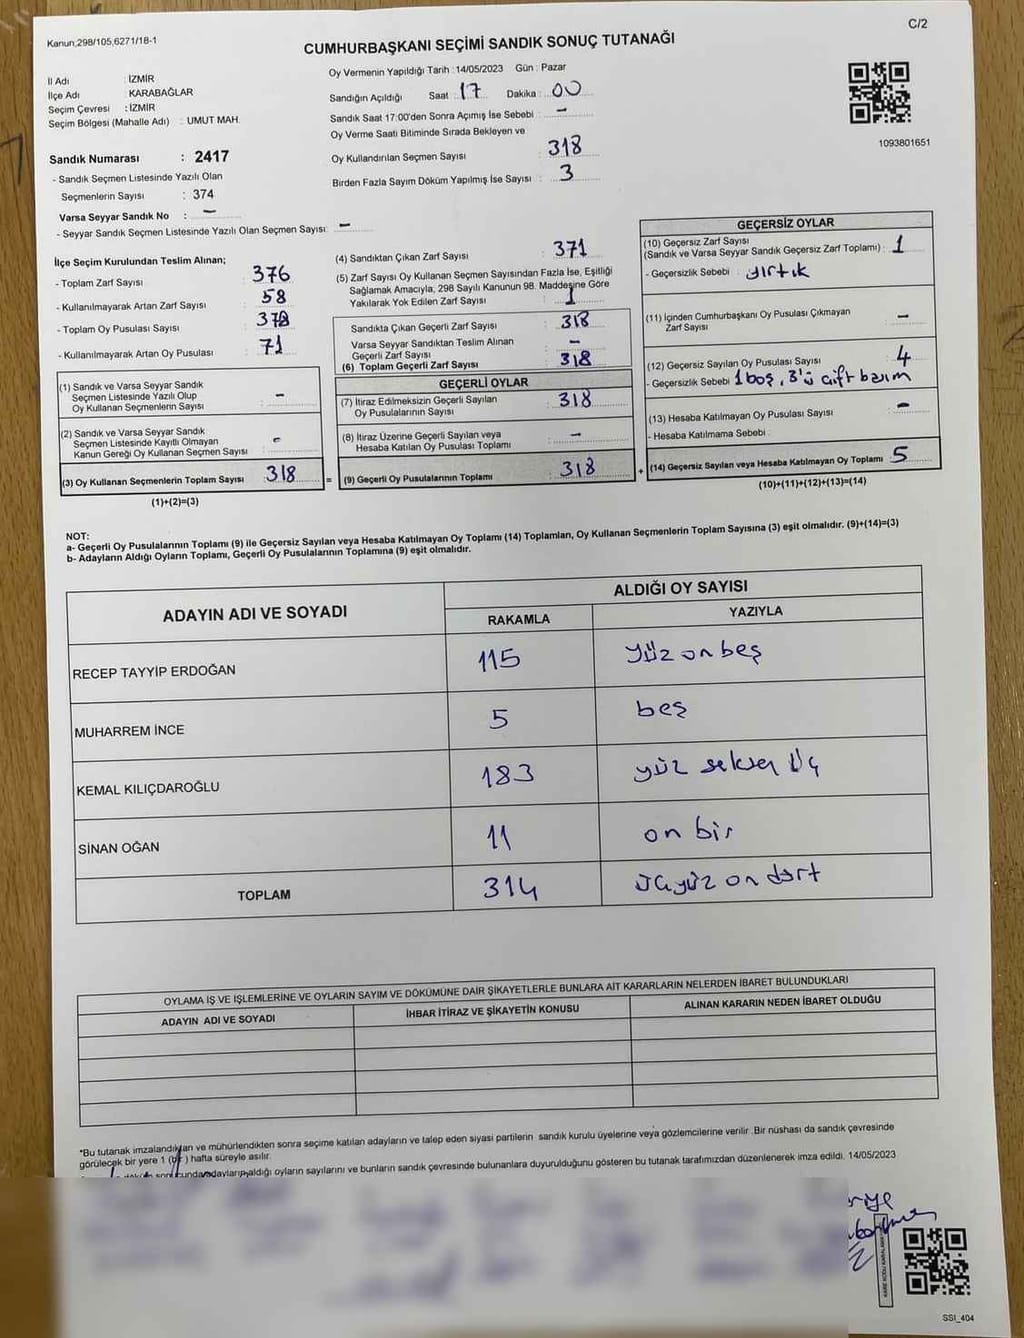 Kanun,298/105,6271/18-1
C/2
CUMHURBAŞKANI SEÇİMİ SANDIK SONUÇ TUTANAĞI
İl Adı : İZMİR
İlçe Adı : KARABAĞLAR
Seçim Çevresi : İZMİR
Seçim Bölgesi (Mahalle Adı) : UMUT MAH.
Sandık Numarası : 2417
- Sandık Seçmen Listesinde Yazılı Olan
Seçmenlerin Sayısı : 374
Varsa Seyyar Sandık No : -
- Seyyar Sandık Seçmen Listesinde Yazılı Olan Seçmen Sayısı: -
Oy Vermenin Yapıldığı Tarih :14/05/2023 Gün : Pazar
Sandığın Açıldığı Saat : 17 Dakika : 00
Sandık Saat 17:00'den Sonra Açımış İse Sebebi : -
Oy Verme Saati Bitiminde Sırada Bekleyen ve
Oy Kullandırılan Seçmen Sayısı : 318
Birden Fazla Sayım Döküm Yapılmış İse Sayısı : 3
1093801651
İlçe Seçim Kurulundan Teslim Alınan;
- Toplam Zarf Sayısı : 376
- Kullanılmayarak Artan Zarf Sayısı : 58
- Toplam Oy Pusulası Sayısı :
- Kullanılmayarak Artan Oy Pusulası : 71
(1) Sandık ve Varsa Seyyar Sandık
Seçmen Listesinde Yazılı Olup
Oy Kullanan Seçmenlerin Sayısı : -
(2) Sandık ve Varsa Seyyar Sandık
Seçmen Listesinde Kayıtlı Olmayan
Kanun Gereği Oy Kullanan Seçmen Sayısı : -
(3) Oy Kullanan Seçmenlerin Toplam Sayısı : 318
(1)+(2)=(3)
(4) Sandıktan Çıkan Zarf Sayısı : 371
(5) Zarf Sayısı Oy Kullanan Seçmen Sayısından Fazla İse, Eşitliği
Sağlamak Amacıyla, 298 Sayılı Kanunun 98. Maddesine Göre
Yakılarak Yok Edilen Zarf Sayısı : 1
Sandıkta Çıkan Geçerli Zarf Sayısı : 318
Varsa Seyyar Sandıktan Teslim Alınan
Geçerli Zarf Sayısı : -
(6) Toplam Geçerli Zarf Sayısı : 318
GEÇERLİ OYLAR
(7) İtiraz Edilmeksizin Geçerli Sayılan
Oy Pusulalarının Sayısı : 318
(8) İtiraz Üzerine Geçerli Sayılan veya
Hesaba Katılan Oy Pusulası Toplamı : -
= (9) Geçerli Oy Pusulalarının Toplamı : 318
GEÇERSİZ OYLAR
(10) Geçersiz Zarf Sayısı
(Sandık ve Varsa Seyyar Sandık Geçersiz Zarf Toplamı) : 1
- Geçersizlik Sebebi : yırtık
(11) İçinden Cumhurbaşkanı Oy Pusulası Çıkmayan
Zarf Sayısı : -
(12) Geçersiz Sayılan Oy Pusulası Sayısı : 4
- Geçersizlik Sebebi 1 boş, 3'ü çift basım
(13) Hesaba Katılmayan Oy Pusulası Sayısı : -
- Hesaba Katılmama Sebebi :
+ (14) Geçersiz Sayılan veya Hesaba Katılmayan Oy Toplamı : 5
(10)+(11)+(12)+(13)=(14)
NOT:
a- Geçerli Oy Pusulalarının Toplamı (9) ile Geçersiz Sayılan veya Hesaba Katılmayan Oy Toplamı (14) Toplamları, Oy Kullanan Seçmenlerin Toplam Sayısına (3) eşit olmalıdır. (9)+(14)=(3)
b- Adayların Aldığı Oyların Toplamı, Geçerli Oy Pusulalarının Toplamına (9) eşit olmalıdır.
ADAYIN ADI VE SOYADI
ALDIĞI OY SAYISI
RAKAMLA YAZIYLA
RECEP TAYYİP ERDOĞAN 115 yüz on beş
MUHARREM İNCE 5 beş
KEMAL KILIÇDAROĞLU 183 yüz seksen üç
SİNAN OĞAN 11 on bir
TOPLAM 314 üçyüz on dört
OYLAMA İŞ VE İŞLEMLERİNE VE OYLARIN SAYIM VE DÖKÜMÜNE DAİR ŞİKAYETLERLE BUNLARA AİT KARARLARIN NELERDEN İBARET BULUNDUKLARI
ADAYIN ADI VE SOYADI İHBAR İTİRAZ VE ŞİKAYETİN KONUSU ALINAN KARARIN NEDEN İBARET OLDUĞU
*Bu tutanak imzalandıktan ve mühürlendikten sonra seçime katılan adayların ve talep eden siyasi partilerin sandık kurulu üyelerine veya gözlemcilerine verilir. Bir nüshası da sandık çevresinde
görülecek bir yere 1 (bir) hafta süreyle asılır.
adayların aldığı oyların sayılarını ve bunların sandık çevresinde bulunanlara duyurulduğunu gösteren bu tutanak tarafımızdan düzenlenerek imza edildi. 14/05/2023
SSI_404